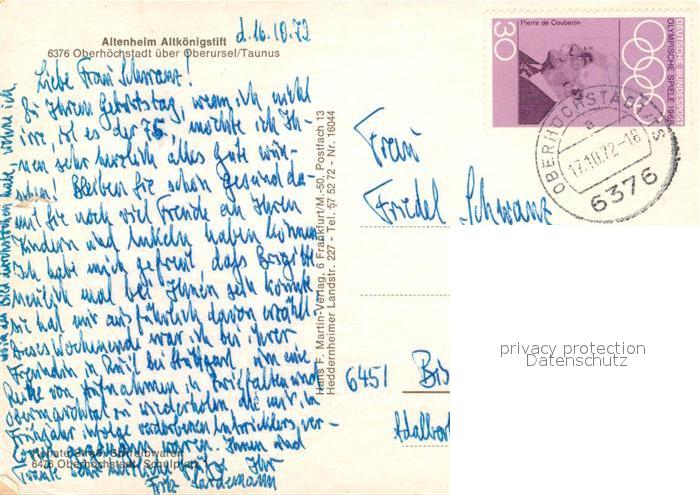 d. 16.10.72
Altenheim Altkönigstift
6376 Oberhöchstadt über Oberursel/Taunus
Liebe Frau Schwanz!
Zu Ihrem Geburtstag, wenn ich nicht
irre, ist es der 75. möchte ich Ih-
nen sehr herzlich alles Gute wün-
schen! Bleiben Sie schön gesund da-
mit Sie noch viel Freude an Ihren
Kindern und Enkeln haben können
Ich habe mich gefreut dass Brigitte
neulich mal bei Ihnen sein konnte
Sie hat mir ausführlich davon erzählt
Dieses Wochenend war ich bei ihrer
Freundin in bei Stuttgart um eine
Reihe von Aufnahmen in Zwiefalten und
Obermarchtal zu wiederholen die mir im
Frühjahr infolge verdorbenen Entwicklers ver-
gangen waren. Ihnen und
sehr herzliche Grüße Ihr
Fritz
Renate Schreibwaren
6476 Oberhöchstadt, Schulplatz
Hans F. Martin-Verlag, 6 Frankfurt/M.-50, Postfach 13
Heddernheimer Landstr. 227 - Tel. 57 52 72 - Nr. 16044
Pierre de Coubertin
30
OLYMPISCHE SPIELE 1968
DEUTSCHE BUNDESPOST
OBERHÖCHSTADT/TS
a
17.10.72-18
6376
Frau
Friedel Schwanz
6451 Bis
Adalber
privacy protection
Datenschutz